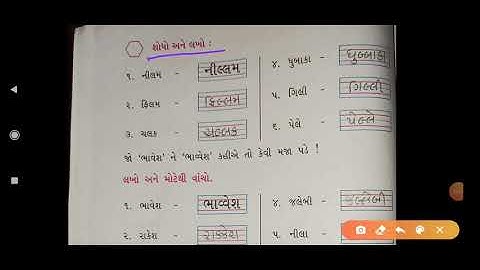 શોધો અને લખો :
૧. નીલમ - નીલ્લમ
૨. ફિલમ - ફિલ્લમ
૩. ચલક - ચલ્લક
૪. ધુબાકા - ધુબ્બાકા
૫. ગિલી - ગિલ્લી
૬. પેલે - પેલ્લે
જો 'ભાવેશ' ને 'ભાવ્વેશ' કહીએ તો કેવી મજા પડે !
લખો અને મોટેથી વાંચો.
૧. ભાવેશ - ભાવ્વેશ
૨. રાકેશ - રાક્કેશ
૪. જલેબી - જલ્લેબી
૫. નીલા -